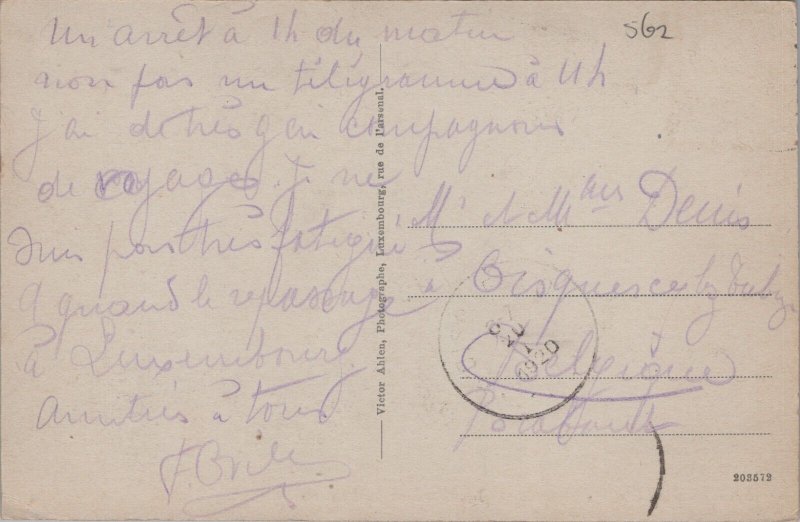 Un arrêt à 1h du matin
562
non pas un télégramme à 11h
J'ai de très gais compagnons
de voyages. Je ne
suis pas très fatigué
quand le
à Luxembourg
Amitiés à tous
Victor Ahlen, Photographe, Luxembourg, rue de l'arsenal.
Mr et Mme Denis
à Oisquercq
Belgique
Brabant
1920
203572